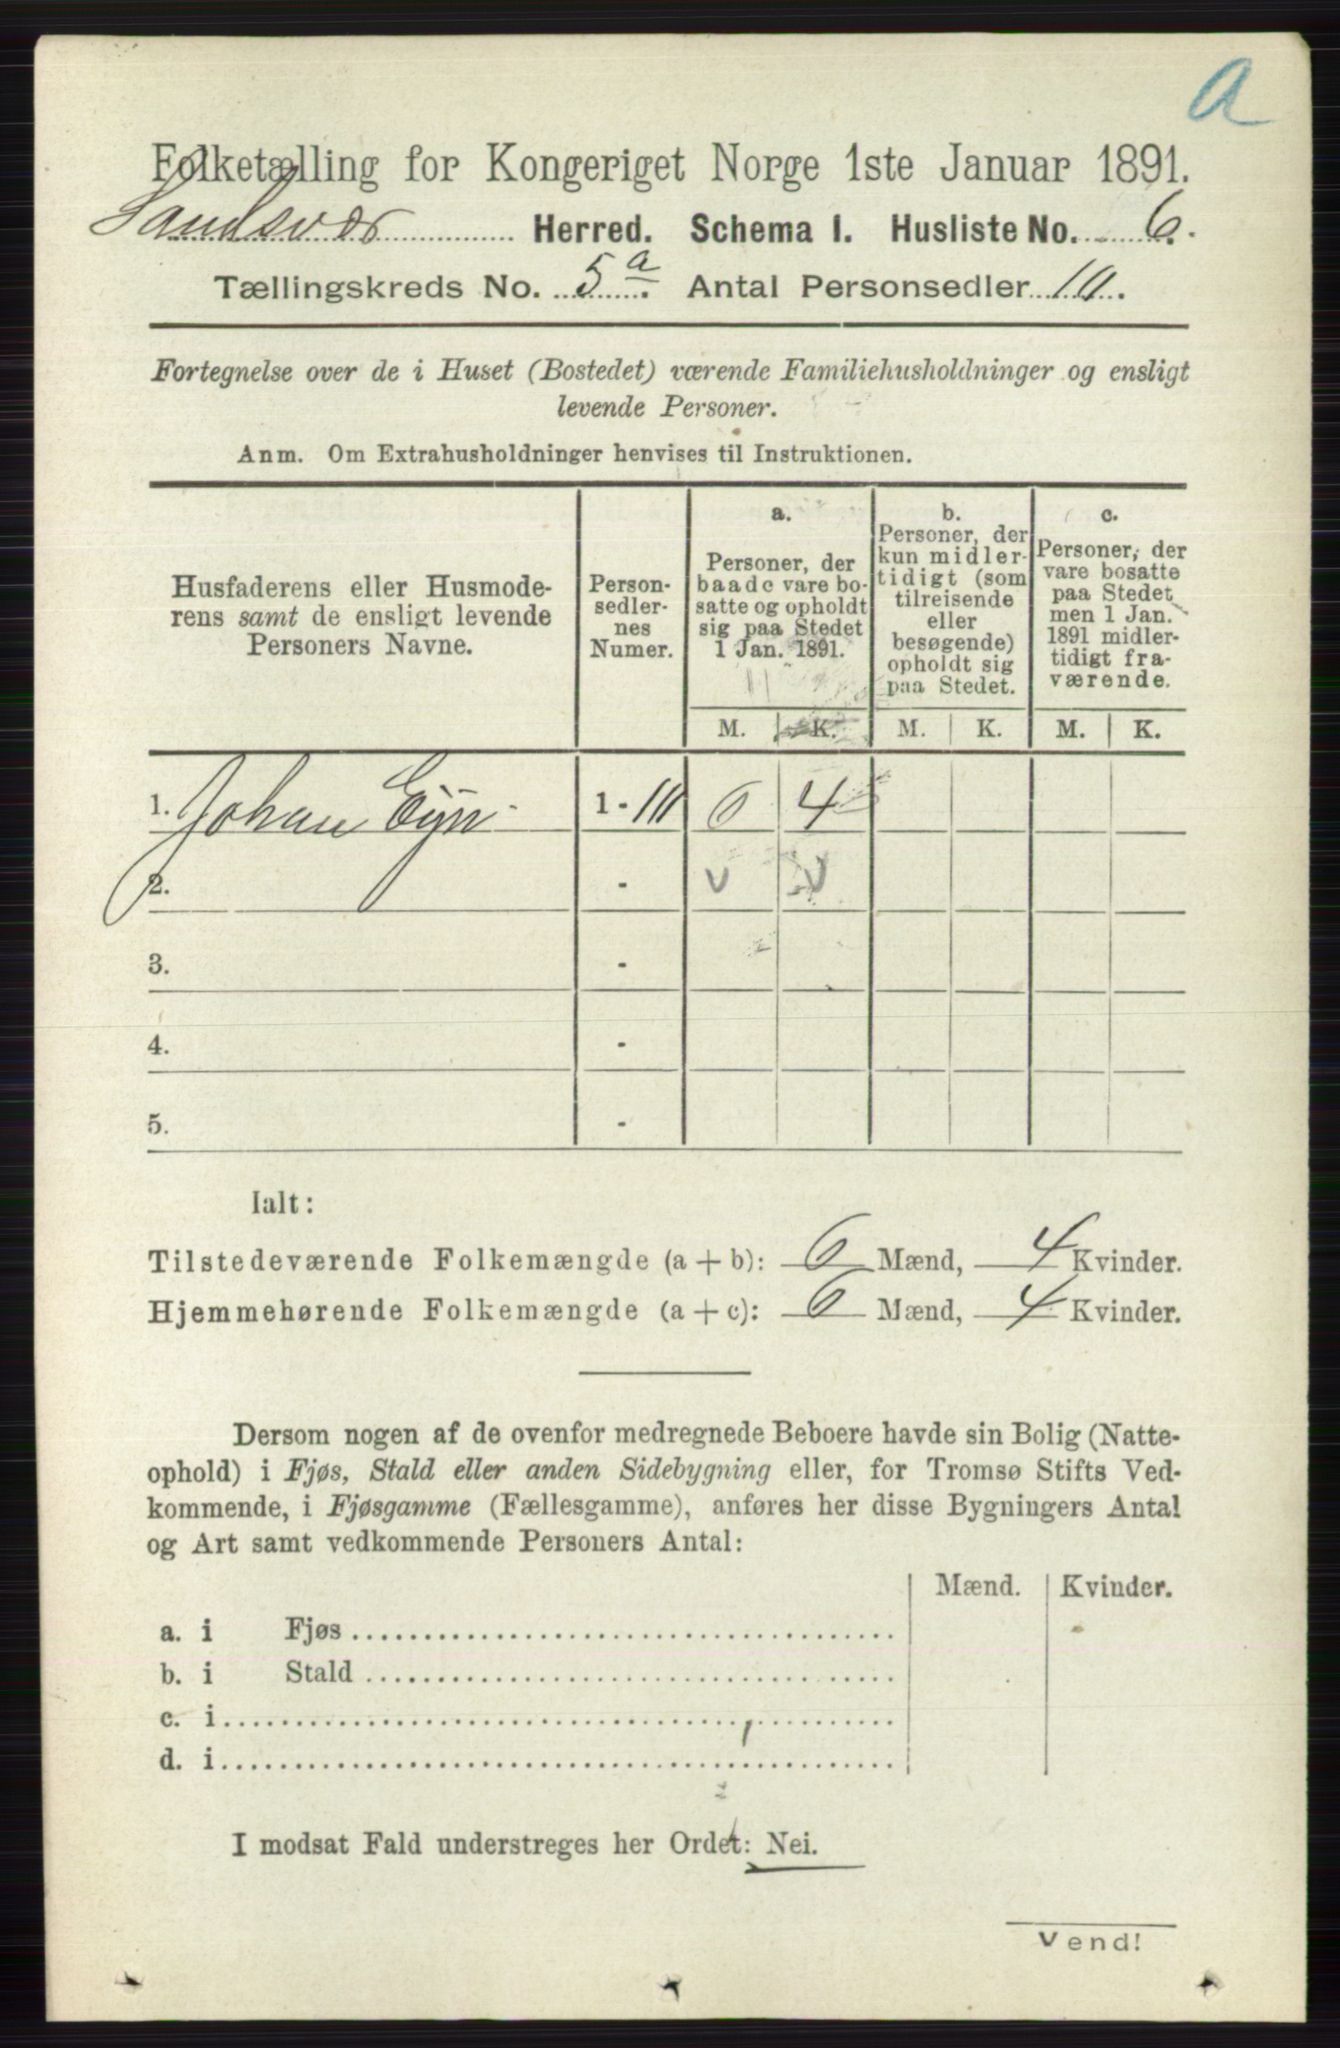 a
Folketælling for Kongeriget Norge 1ste Januar 1891.
Sandsvær Herred. Schema I. Husliste No. 6.
Tællingskreds No. 5 a. Antal Personsedler 10.
Fortegnelse over de i Huset (Bostedet) værende Familiehusholdninger og ensligt
levende Personer.
Anm. Om Extrahusholdninger henvises til Instruktionen.
Husfaderens eller Husmode-
rens samt de ensligt levende
Personers Navne.
Person-
sedler-
nes
Numer.
a.
Personer, der
baade vare bo-
satte og opholdt
sig paa Stedet
1 Jan. 1891.
b.
Personer, der
kun midler-
tidigt (som
tilreisende
eller
besøgende)
opholdt sig
paa Stedet.
c.
Personer, der
vare bosatte
paa Stedet
men 1 Jan.
1891 midler-
tidigt fra-
værende.
M. K. M. K. M. K.
1. Johan 1 - 10 6 4
2. - v v
3. -
4. -
5. -
Ialt:
Tilstedeværende Folkemængde (a + b): 6 Mænd, 4 Kvinder.
Hjemmehørende Folkemængde (a + c): 6 Mænd, 4 Kvinder.
Dersom nogen af de ovenfor medregnede Beboere havde sin Bolig (Natte-
ophold) i Fjøs, Stald eller anden Sidebygning eller, for Tromsø Stifts Ved-
kommende, i Fjøsgamme (Fællesgamme), anføres her disse Bygningers Antal
og Art samt vedkommende Personers Antal:
Mænd. Kvinder.
a. i Fjøs
b. i Stald
c. i
d. i
I modsat Fald understreges her Ordet: Nei.
Vend!